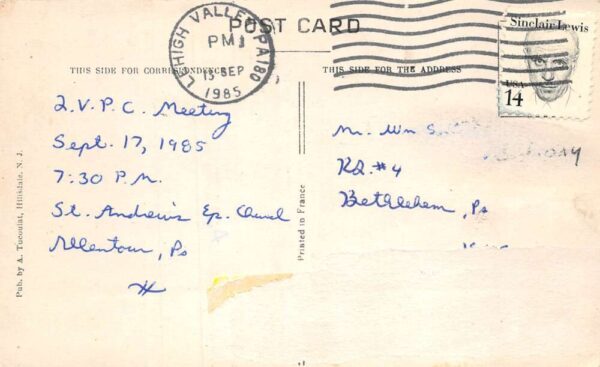 POST CARD
LEHIGH VALLEY PA 180
PM
15 SEP
1985
Sinclair Lewis
USA
14
THIS SIDE FOR CORRESPONDENCE
THIS SIDE FOR THE ADDRESS
L.V.P.C. Meeting
Sept. 17, 1985
7:30 P.M.
St. Andrew's Ep. Church
Allentown, Pa
Mr. Wm S.
RD. #4
Bethlehem, Pa
Pub. by A. Tocoulat, Hillsdale, N. J.
Printed in France